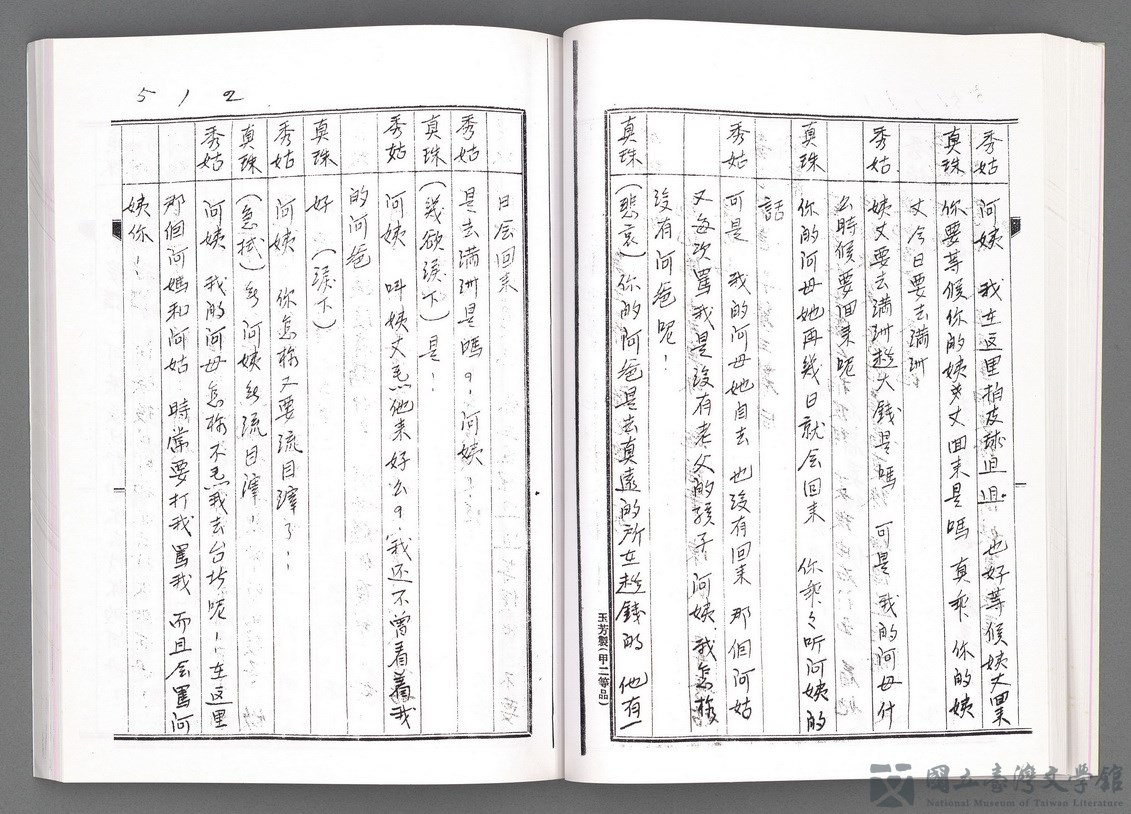 秀姑 阿姨 我在这里拍皮球迌迌。也好等候姨丈回来
真珠 你要等候你的姨丈回来是嗎 真乖 你的姨
丈今日要去満洲
秀姑 姨丈要去満洲趁大錢是嗎 可是我的阿母什
么時候要回来呢
真珠 你的阿母她再幾日就会回来 你乖々听阿姨的
話
秀姑 可是 我的阿母她自去 也沒有回来 那個阿姑
又每次罵我是沒有老父的孩子 阿姨 我怎樣
沒有阿爸呢！
真珠 （悲哀）你的阿爸是去真遠的所在趁錢的 他有一
玉芳製(甲二等品)
512
日会回来
秀姑 是去满洲是嗎？阿姨！
真珠 （幾欲淚下）是！
秀姑 阿姨 叫姨丈焄他来好么？我还不曾看着我
的阿爸
真珠 好 （淚下）
秀姑 阿姨 你怎樣又要流目滓了！
真珠 （急拭） 阿姨 流目滓！
秀姑 阿姨 我的阿母怎樣不焄我去台北呢！在這里
那個阿媽和阿姑 時常要打我罵我 而且会罵阿
姨你！
國立臺灣文學館
National Museum of Taiwan Literature